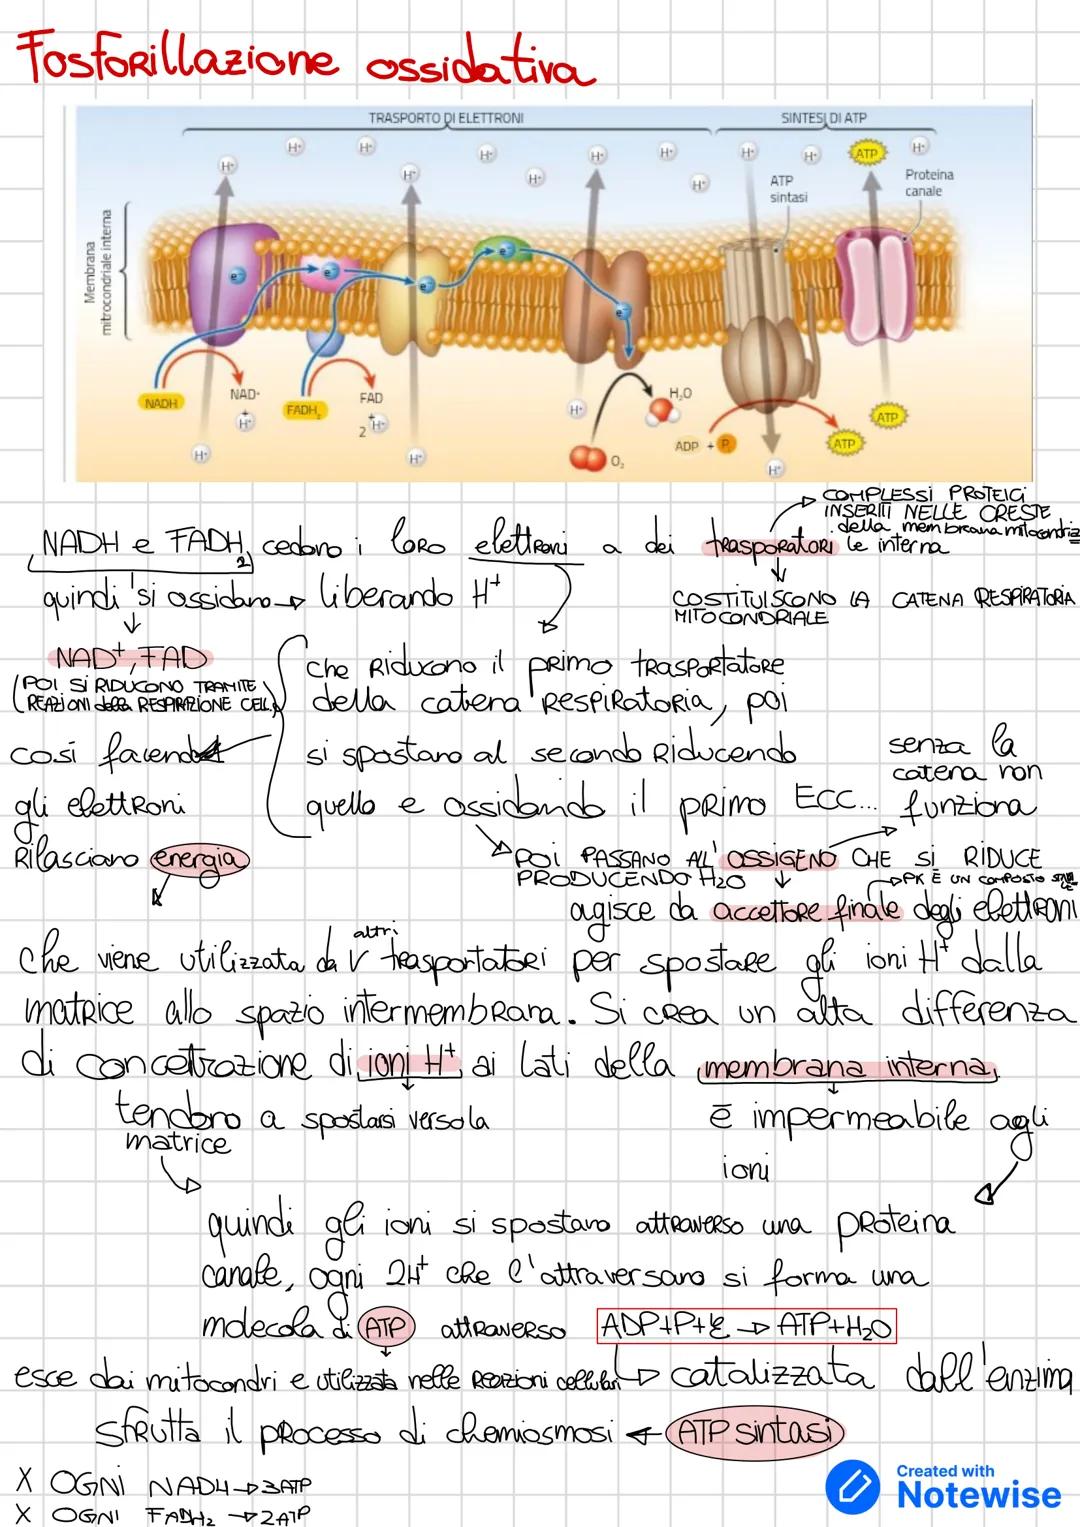 Fosforillazione ossidativa
TRASPORTO DI ELETTRONI
SINTESI DI ATP
H+ H+ H+ H+ H+ H+ H+ H+ H+ H+ H+ ATP H+
ATP sintasi
Proteina canale
Membrana mitocondriale interna
e- e- e- e- e-
NADH
NAD+
+
H+
FADH2
FAD
+
2 H+
H+
H+
H+
O2
H2O
ADP + P
ATP
ATP
H+
COMPLESSI PROTEICI
INSERITI NELLE CRESTE
della membrana mitocondria
le interna
NADH e FADH2 cedono i loro elettroni a dei trasporatori
quindi si ossidano → liberando H+
COSTITUISCONO LA CATENA RESPIRATORIA
MITOCONDRIALE
NAD+, FAD
(POI SI RIDUCONO TRAMITE
REAZIONI della RESPIRAZIONE CELL.)
che riducono il primo trasportatore
della catena respiratoria, poi
si spostano al secondo riducendo
quello e ossidando il primo ECC...
così facendo
gli elettroni
rilasciano energia
senza la
catena non
funziona
POI PASSANO ALL'OSSIGENO CHE SI RIDUCE
PRODUCENDO H2O
PK È UN COMPOSTO
agisce da accettore finale degli elettroni
che viene utilizzata da altri trasportatori per spostare gli ioni H+ dalla
matrice allo spazio intermembrana. Si crea un alta differenza
di concetrazione di ioni H+ ai lati della membrana interna.
tendono a spostarsi verso la
matrice
è impermeabile agli
ioni
quindi gli ioni si spostano attraverso una proteina
canale, ogni 2H+ che l'attraversano si forma una
molecola di ATP attraverso ADP+P+E → ATP+H2O
esce dai mitocondri e utilizzata nelle reazioni cellulari → catalizzata dall'enzima
sfrutta il processo di chemiosmosi ← ATP sintasi
X OGNI NADH → 3ATP
X OGNI FADH2 → 2ATP
Created with
Notewise